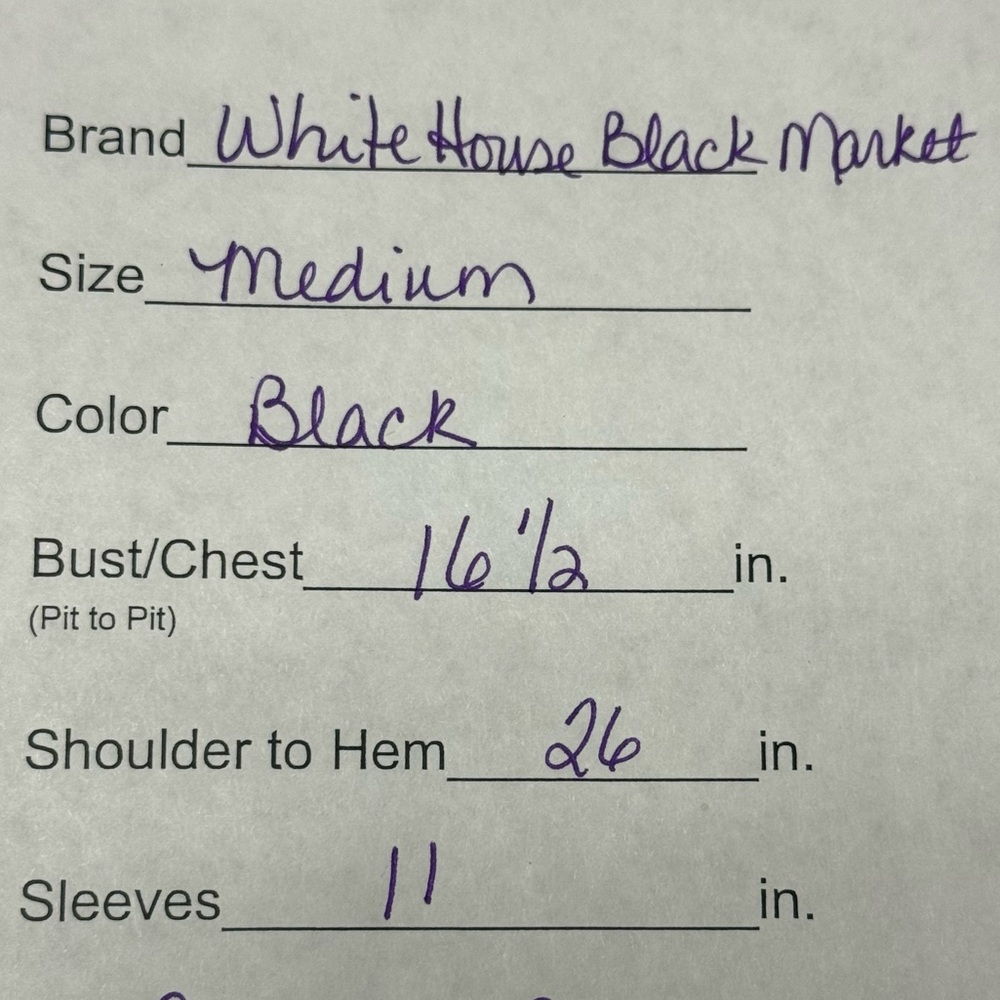 Brand White House Black Market
Size Medium
Color Black
Bust/Chest 16 1/2 in.
(Pit to Pit)
Shoulder to Hem 26 in.
Sleeves 11 in.